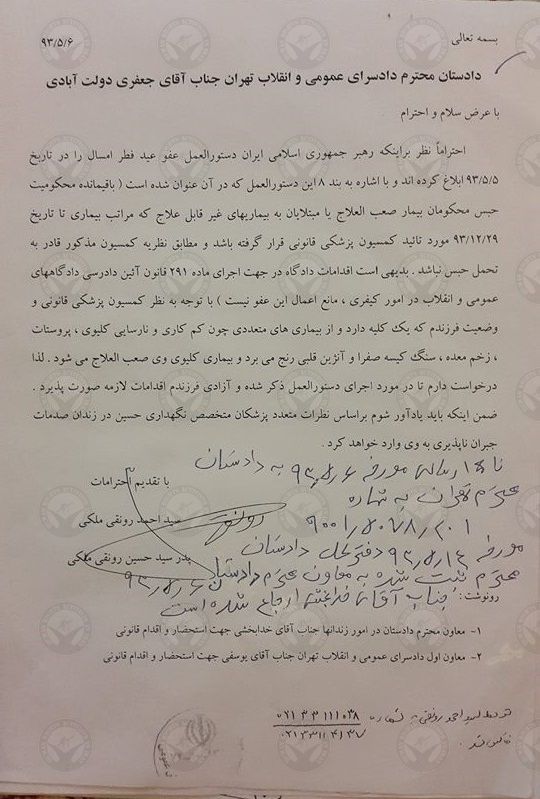 بسمه تعالی
۹۳/۵/۶
دادستان محترم دادسرای عمومی و انقلاب تهران جناب آقای جعفری دولت آبادی
با عرض سلام و احترام
احتراماً نظر براینکه رهبر جمهوری اسلامی ایران دستورالعمل عفو عید فطر امسال را در تاریخ
۹۳/۵/۵ ابلاغ کرده اند و با اشاره به بند ۸ این دستورالعمل که در آن عنوان شده است ( باقیمانده محکومیت
حبس محکومان بیمار صعب العلاج یا مبتلایان به بیماریهای غیر قابل علاج که مراتب بیماری تا تاریخ
۹۳/۱۲/۲۹ مورد تائید کمسیون پزشکی قانونی قرار گرفته باشد و مطابق نظریه کمسیون مذکور قادر به
تحمل حبس نباشد . بدیهی است اقدامات دادگاه در جهت اجرای ماده ۲۹۱ قانون آئین دادرسی دادگاههای
عمومی و انقلاب در امور کیفری ، مانع اعمال این عفو نیست ) با توجه به نظر کمسیون پزشکی قانونی و
وضعیت فرزندم که یک کلیه دارد و از بیماری های متعددی چون کم کاری و نارسایی کلیوی ، پروستات
، زخم معده ، سنگ کیسه صفرا و آنژین قلبی رنج می برد و بیماری کلیوی وی صعب العلاج می شود . لذا
درخواست دارم تا در مورد اجرای دستورالعمل ذکر شده و آزادی فرزندم اقدامات لازمه صورت پذیرد .
ضمن اینکه باید یادآور شوم براساس نظرات متعدد پزشکان متخصص نگهداری حسین در زندان صدمات
جبران ناپذیری به وی وارد خواهد کرد .
مورخه ۹۳/۵/۶ به دادستان
با تقدیم احترامات
محترم تهران به شماره
سید احمد رونقی ملکی
دفتر کل دادستان
پدر سید حسین رونقی ملکی
محترم ثبت شده به معاون محترم دادستان
رونوشت:
جناب آقای خدابخشی ارجاع شده است
۱- معاون محترم دادستان در امور زندانها جناب آقای خدابخشی جهت استحضار و اقدام قانونی
۲- معاون اول دادسرای عمومی و انقلاب تهران جناب آقای یوسفی جهت استحضار و اقدام قانونی
توسط سید احمد رونقی به شماره ۰۲۱۳۳۱۱۱۰۳۸